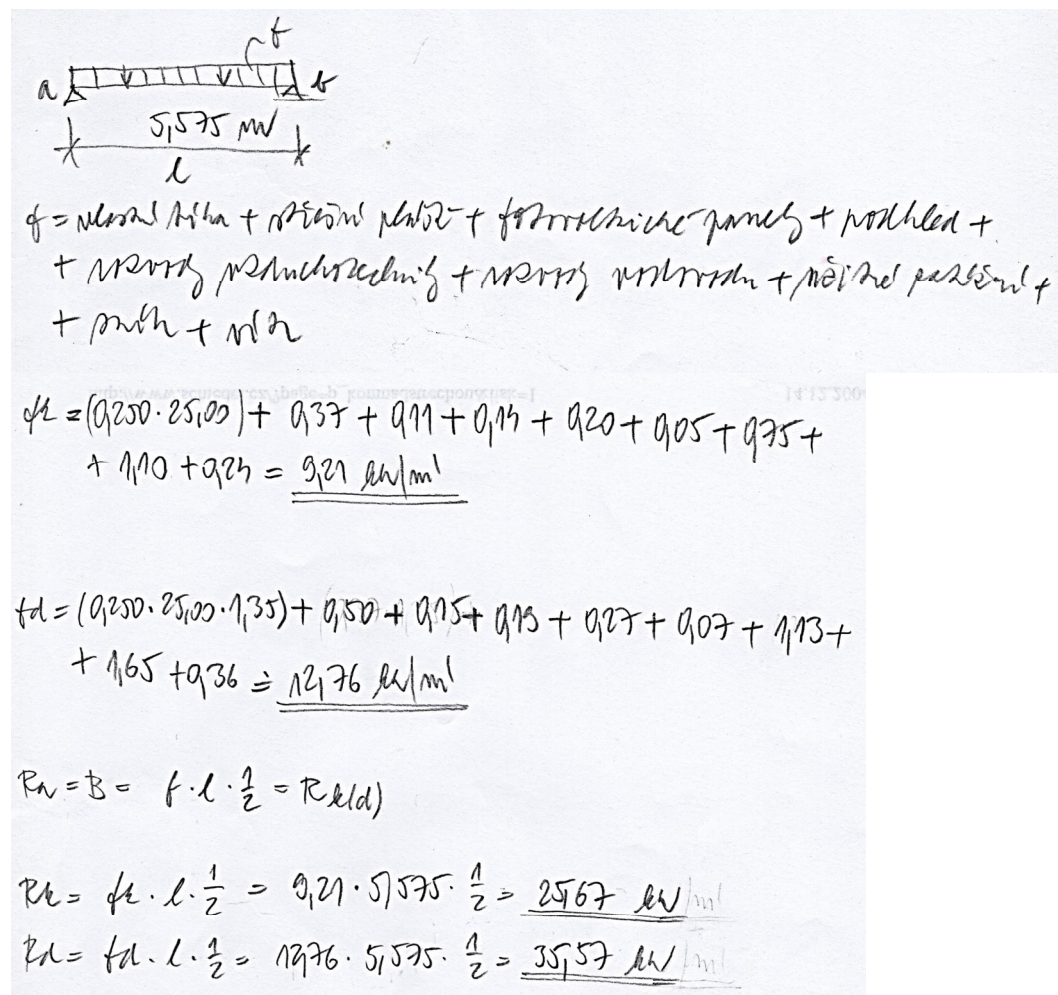 f
a b
5,575 m
l
f = vlastní tíha + střešní plášť + fotovoltaické panely + podhled +
+ rozvody vzduchotechniky + rozvody vodovodu + užitné zatížení +
+ sníh + vítr
14.12.200
fk = (0,250 · 25,00) + 0,37 + 0,11 + 0,14 + 0,20 + 0,05 + 0,75 +
+ 1,10 + 0,24 = 9,21 kN/m'
fd = (0,250 · 25,00 · 1,35) + 0,50 + 0,15 + 0,19 + 0,27 + 0,07 + 1,13 +
+ 1,65 + 0,36 = 12,76 kN/m'
Ra = B = f · l · 1/2 = Rk(d)
Rk = fk · l · 1/2 = 9,21 · 5,575 · 1/2 = 25,67 kN/m'
Rd = fd · l · 1/2 = 12,76 · 5,575 · 1/2 = 35,57 kN/m'